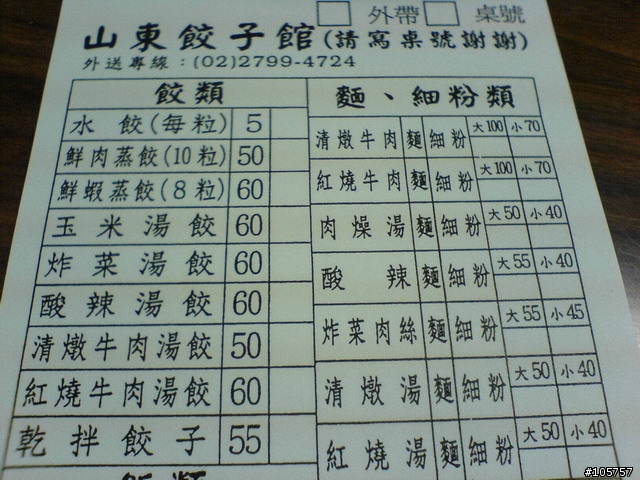 外帶 桌號
山東餃子館(請寫桌號謝謝)
外送專線：(02)2799-4724
餃類
水餃(每粒) 5
鮮肉蒸餃(10粒) 50
鮮蝦蒸餃(8粒) 60
玉米湯餃 60
炸菜湯餃 60
酸辣湯餃 60
清燉牛肉湯餃 50
紅燒牛肉湯餃 60
乾拌餃子 55
麵、細粉類
清燉牛肉 麵 細粉 大100 小70
紅燒牛肉 麵 細粉 大100 小70
肉燥湯 麵 細粉 大50 小40
酸辣 麵 細粉 大55 小40
炸菜肉絲 麵 細粉 大55 小45
清燉湯 麵 細粉 大50 小40
紅燒湯 麵 細粉 大50 小40
#105757